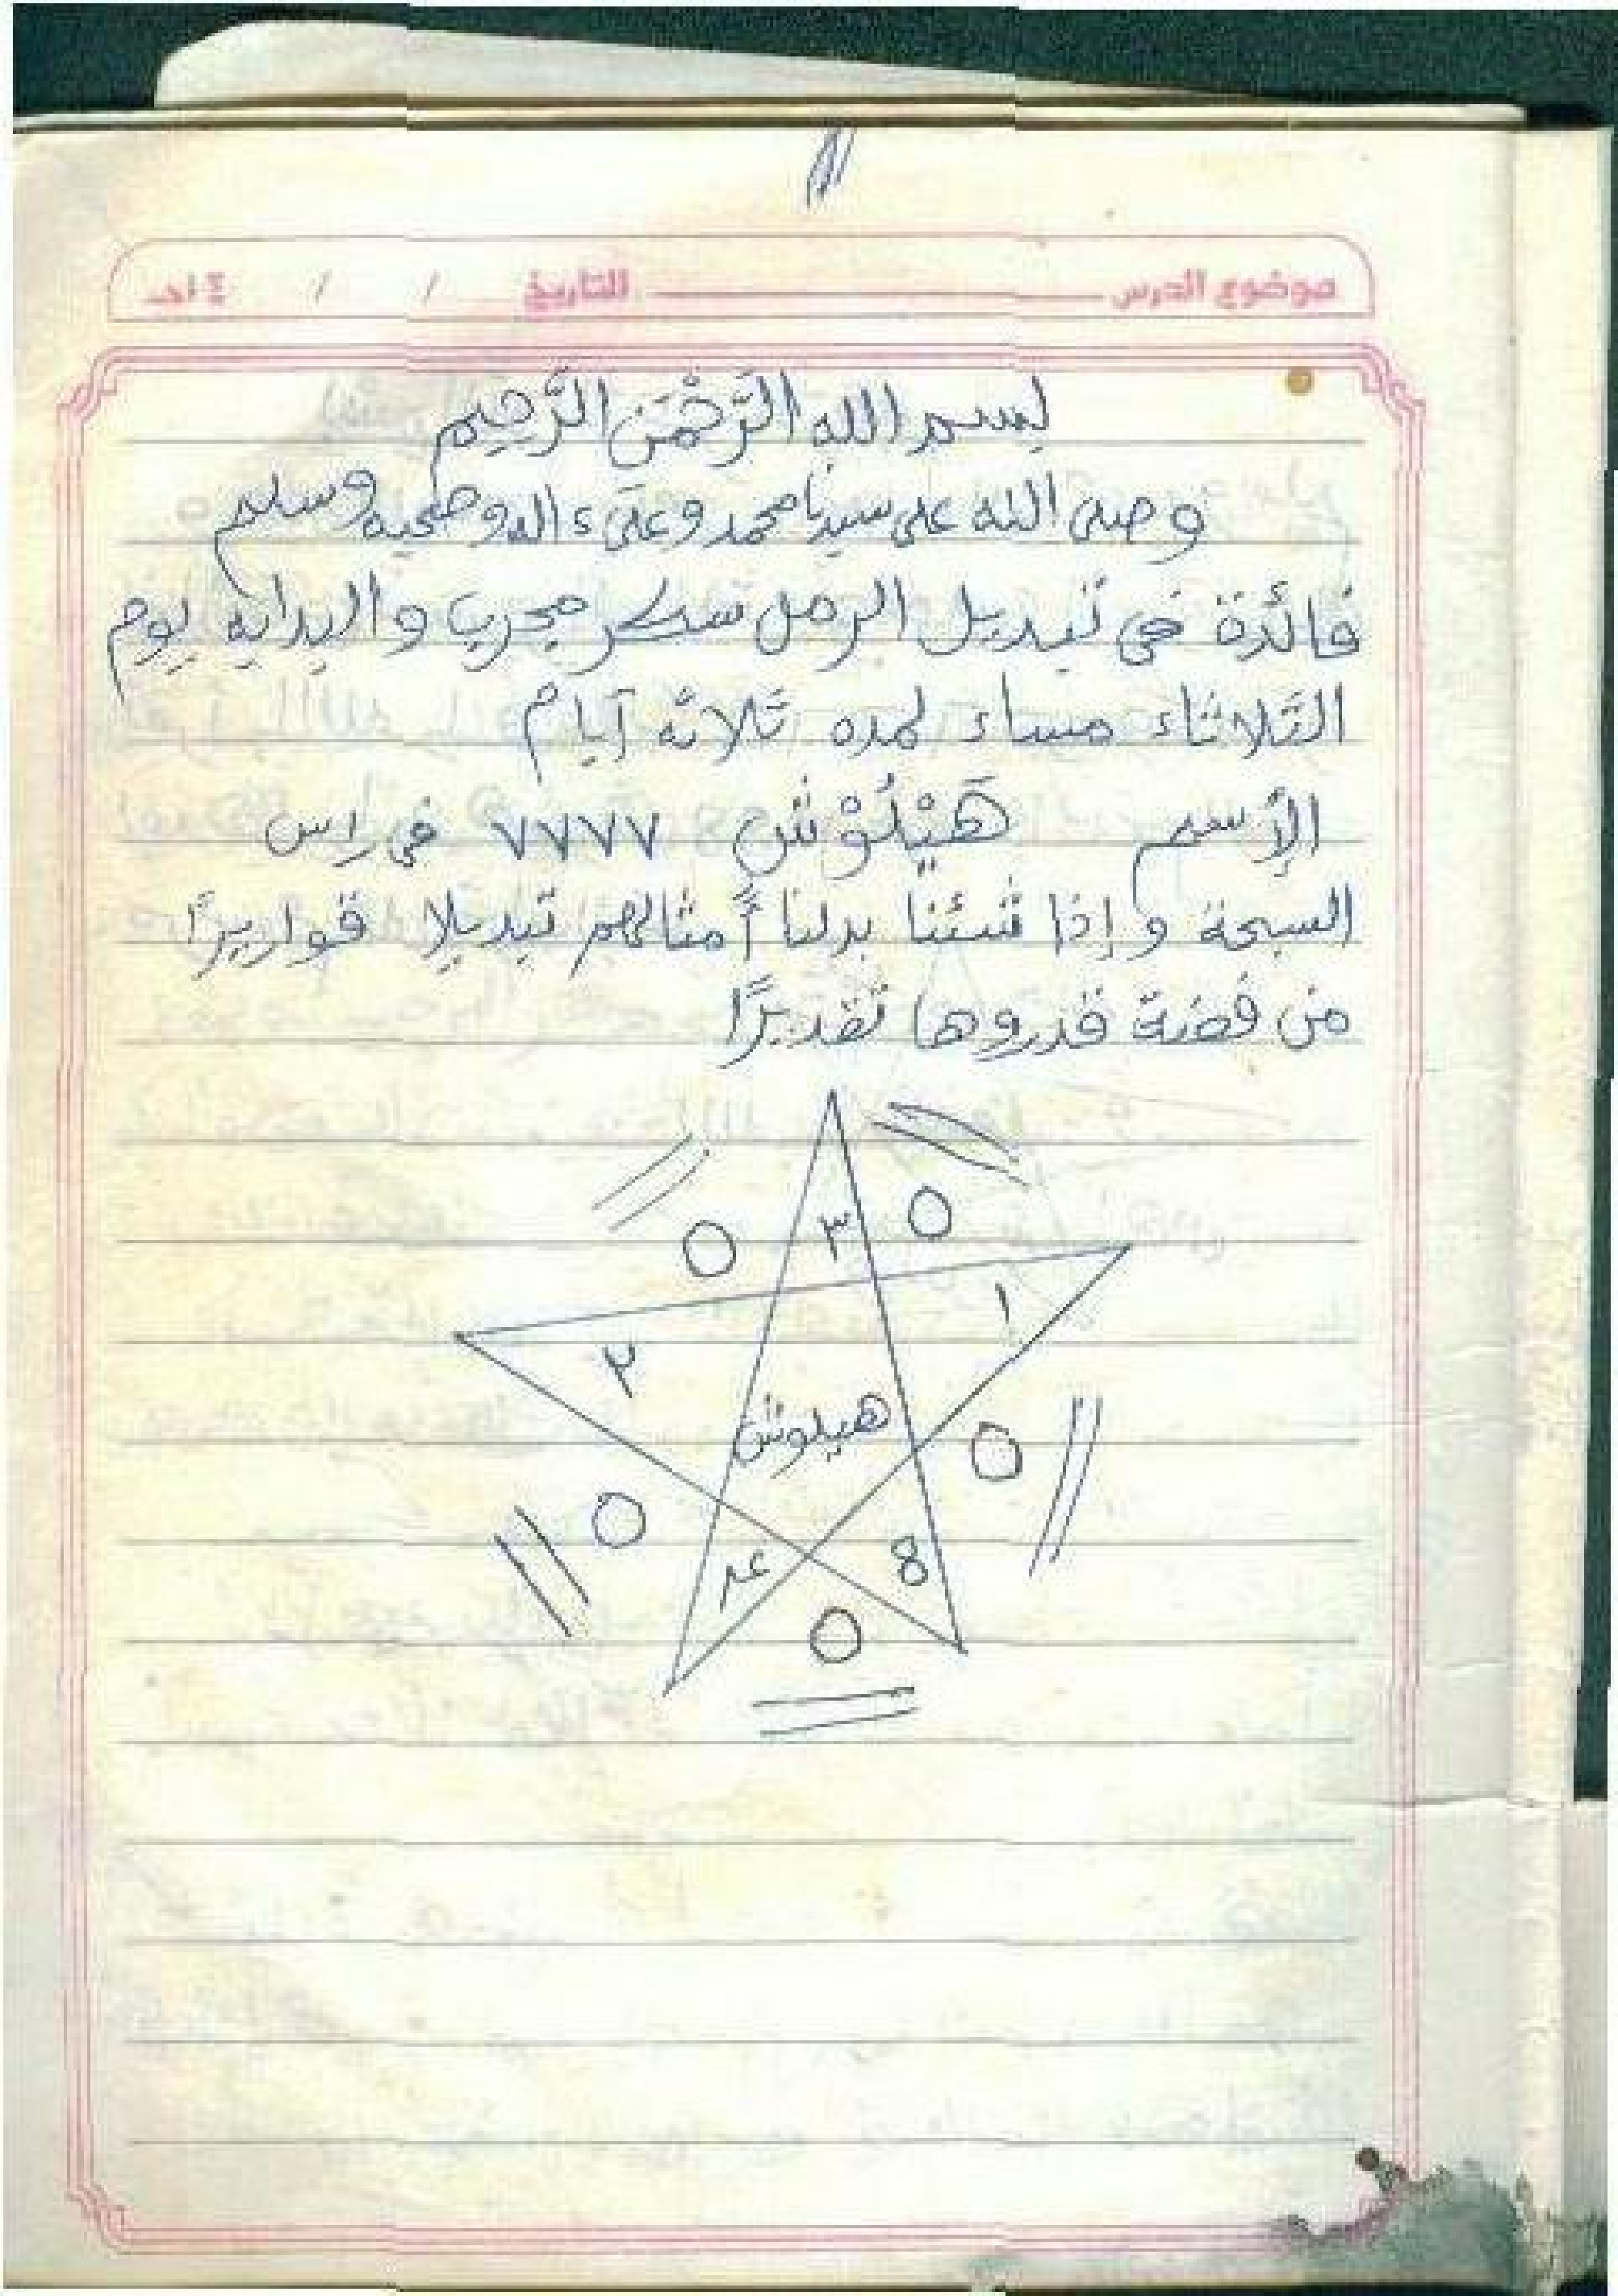 موضوع الدرس ـــــــــ التاريخ / / ١٤هـ
بسم الله الرَّحْمَنِ الرَّحِيم
وصلى الله على سيدنا محمد وعلىء اله وصحبه وسلم
فائدة في تبديل الرمل سكر مجرب والبدايه يوم
الثلاثاء مساء لمده ثلاثه آيام
الأسم هَيْلُوْش ٧٧٧٧ في راس
السبحة وإذا شئنا بدلنا أمثالهم تبديلا قواريرًا
من فضة قدروها تقديرًا
٣
١
٢
هيلوش
٤
8